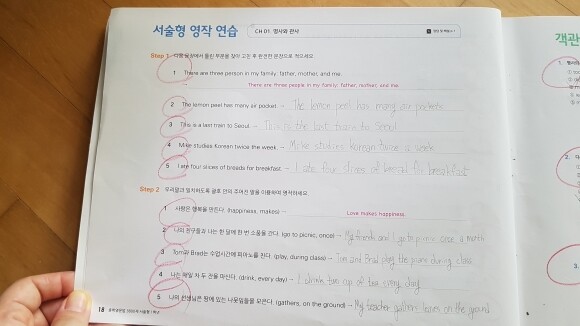 서술형 영작 연습
CH 01. 명사와 관사
Step 1 다음 문장에서 틀린 부분을 찾아 고친 후 완전한 문장으로 적으세요.
1 There are three person in my family: father, mother, and me.
There are three people in my family: father, mother, and me.
2 The lemon peel has many air pocket. - The lemon peel has many air pockets
3 This is a last train to Seoul - This is the last train to Seoul
4 Mike studies Korean twice the week. - Mike studies korean twice a week
5 I ate four slices of breads for breakfast. - I ate four slices of bread for breakfast
Step 2 우리말과 일치하도록 괄호 안의 주어진 말을 이용하여 영작하세요.
1 사랑은 행복을 만든다. (happiness, makes) - Love makes happiness.
2 나의 친구들과 나는 한 달에 한 번 소풍을 간다. (go to picnic, once) - My friends and I go to picnic once a month
3 Tom과 Brad는 수업시간에 피아노를 친다. (play, during class) - Tom and Brad play the piano during class
4 나는 매일 차 두 잔을 마신다. (drink, every day) - I drink two cup of tea every day
5 나의 선생님은 땅에 있는 나뭇잎들을 모은다. (gathers, on the ground) - My teacher gathers leaves on the ground
18
객관
1.
2.
3.